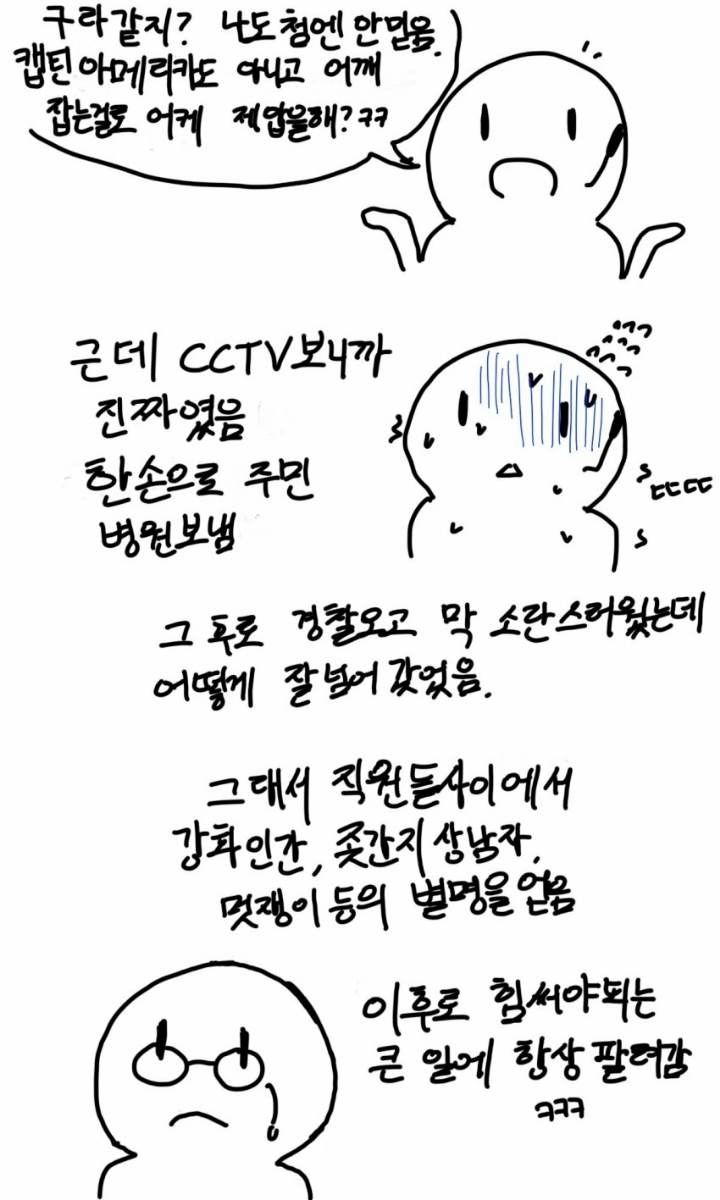 구라같지? 나도 첨엔 안믿음.
캡틴 아메리카도 아니고 어깨
잡는걸로 어케 제압을해? ㅋㅋ
근데 CCTV보니까
진짜였음
한손으로 주민
병원보냄
ㄷㄷㄷㄷ
그 후로 경찰오고 막 소란스러웠는데
어떻게 잘 넘어 갔었음.
그래서 직원들사이에서
강화인간, 좆간지 상남자,
멋쟁이 등의 별명을 얻음
이후로 힘써야되는
큰 일에 항상 팔려감
ㅋㅋㅋ